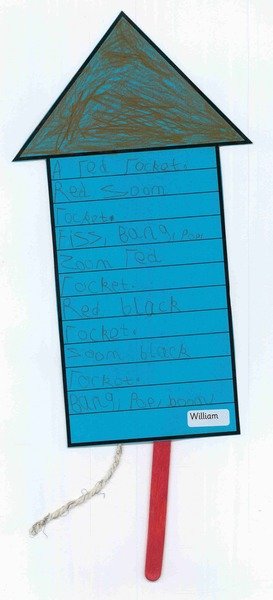 A red rocket.
Red Zoom
rocket.
Fiss, Bang, Pow,
Zoom red
rocket.
Red black
rocket.
Zoom black
rocket.
Bang, Pow, boom,
William